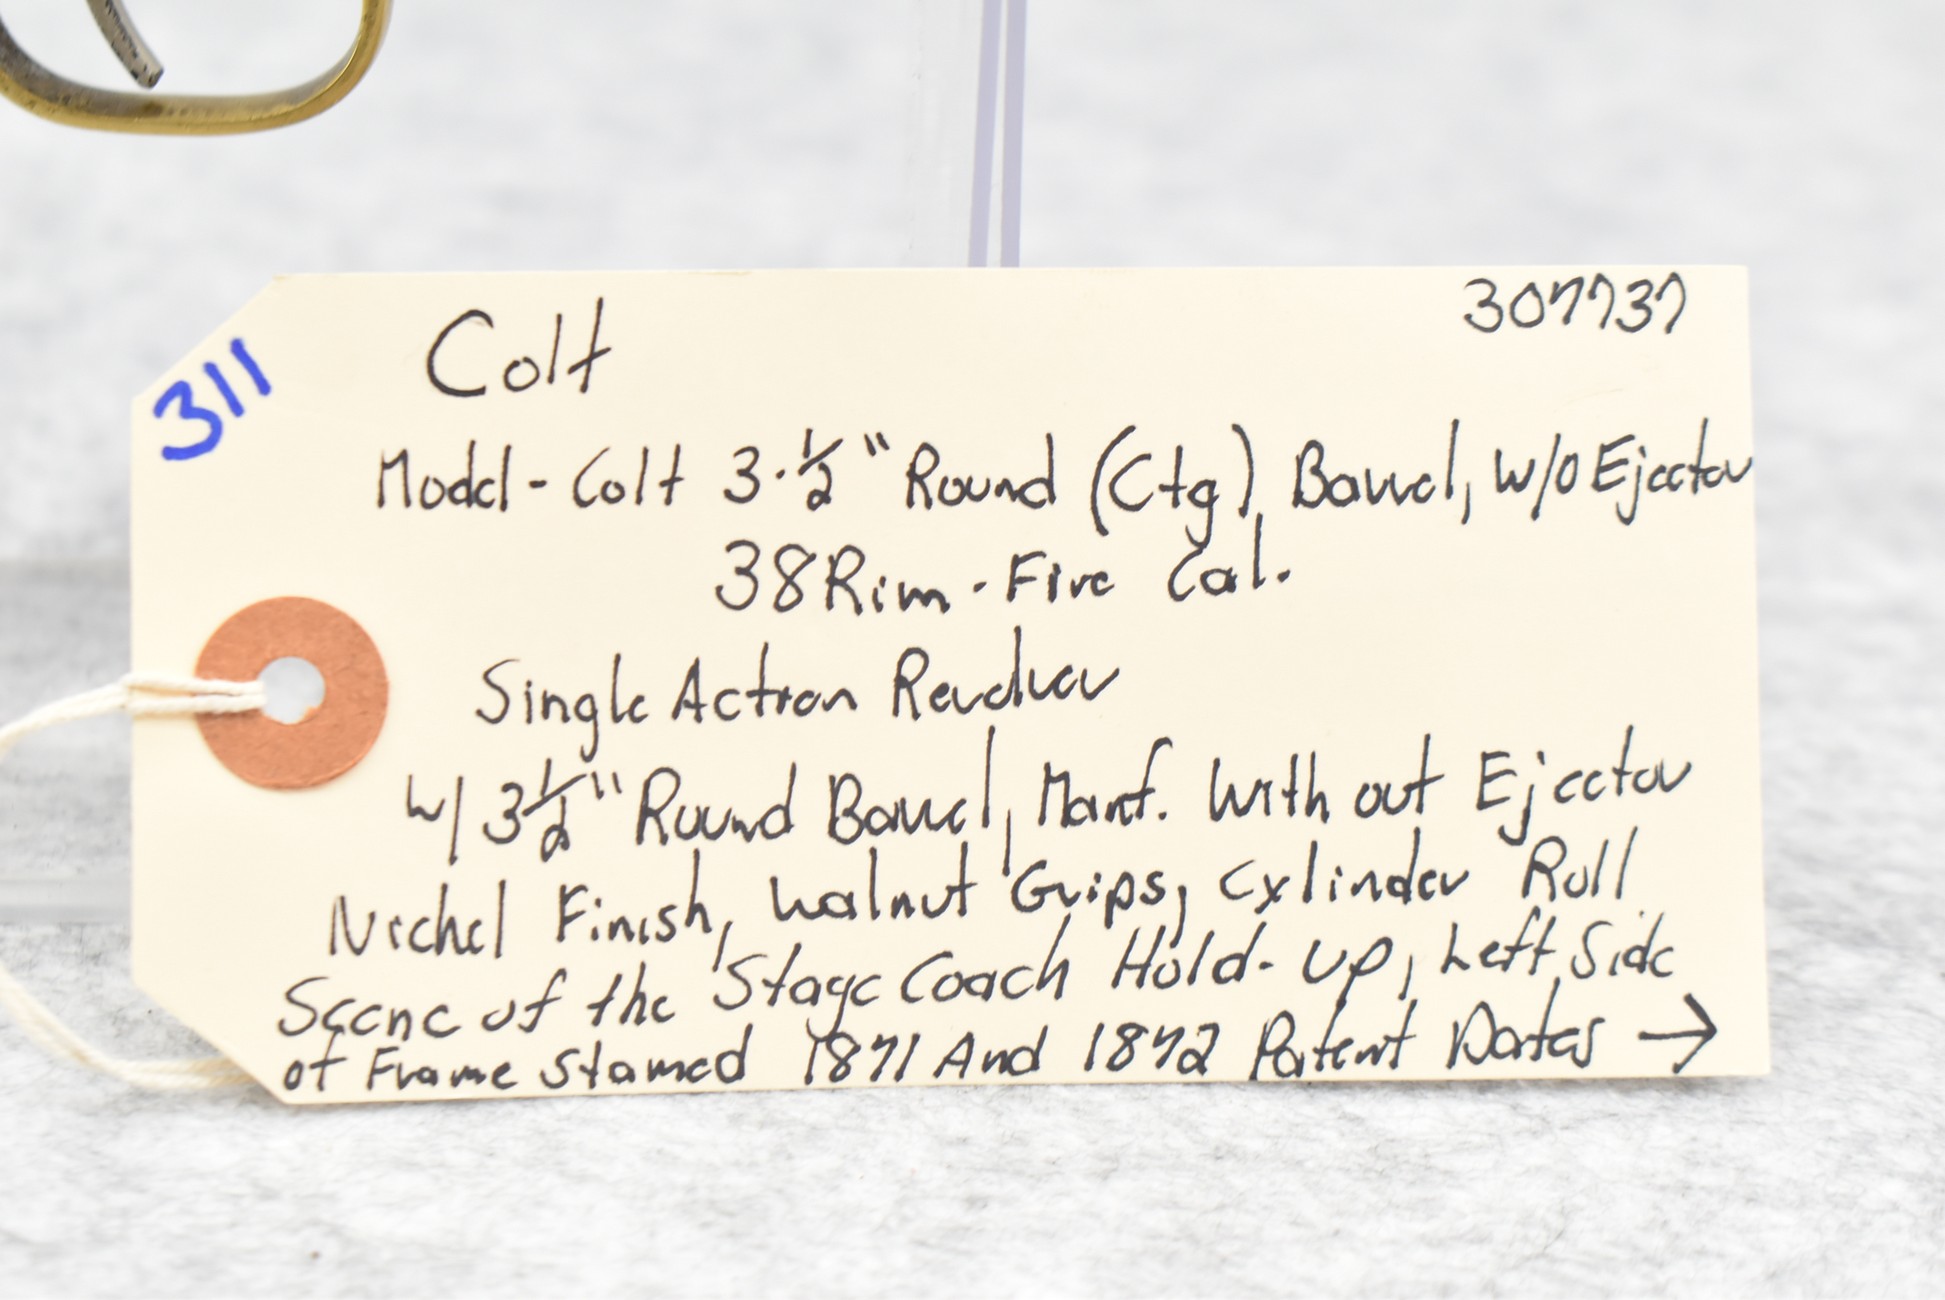 307737
311
Colt
Model - Colt 3·1/2" Round (Ctg) Barrel, w/o Ejector
38 Rim-Fire Cal.
Single Action Revolver
w/ 3 1/2" Round Barrel, Manf. With out Ejector
Nickel Finish, Walnut Grips, Cylinder Roll
Scene of the Stage Coach Hold-up, Left Side
of Frame Stamed 1871 And 1872 Patent Dates →